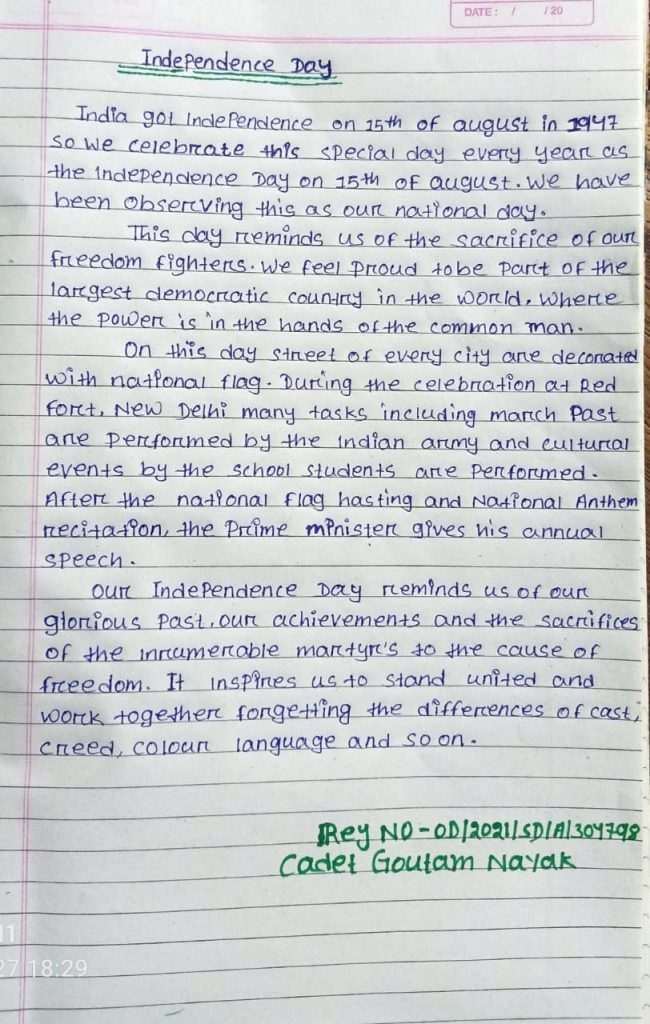 DATE: / /20
Independence Day
India got Independence on 15th of august in 1947
so we celebrate this special day every year as
the Independence Day on 15th of august. We have
been observing this as our national day.
This day reminds us of the sacrifice of our
freedom fighters. We feel proud to be part of the
largest democratic country in the world, where
the power is in the hands of the common man.
On this day street of every city are decorated
with national flag. During the celebration at Red
fort, New Delhi many tasks including march Past
are performed by the indian army and cultural
events by the school students are performed.
After the national flag hasting and National Anthem
recitation, the Prime minister gives his annual
speech.
Our Independence Day reminds us of our
glorious past, our achievements and the sacrifices
of the inrumerable martyr's to the cause of
freedom. It inspires us to stand united and
work together forgetting the differences of cast,
creed, colour language and so on.
Rey NO-OD/2021/SD/A/304798
Cadet Goutam Nayak
11
27 18:29